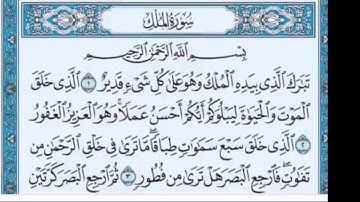 سُورَةُ الْمُلْكِ
بِسْمِ اللَّهِ الرَّحْمَٰنِ الرَّحِيمِ
تَبَٰرَكَ الَّذِي بِيَدِهِ الْمُلْكُ وَهُوَ عَلَىٰ كُلِّ شَيْءٍ قَدِيرٌ ١ الَّذِي خَلَقَ
الْمَوْتَ وَالْحَيَوٰةَ لِيَبْلُوَكُمْ أَيُّكُمْ أَحْسَنُ عَمَلًا ۚ وَهُوَ الْعَزِيزُ الْغَفُورُ
٢ الَّذِي خَلَقَ سَبْعَ سَمَٰوَٰتٍ طِبَاقًا ۖ مَّا تَرَىٰ فِي خَلْقِ الرَّحْمَٰنِ مِن
تَفَٰوُتٍ ۖ فَارْجِعِ الْبَصَرَ هَلْ تَرَىٰ مِن فُطُورٍ ٣ ثُمَّ ارْجِعِ الْبَصَرَ كَرَّتَيْنِ